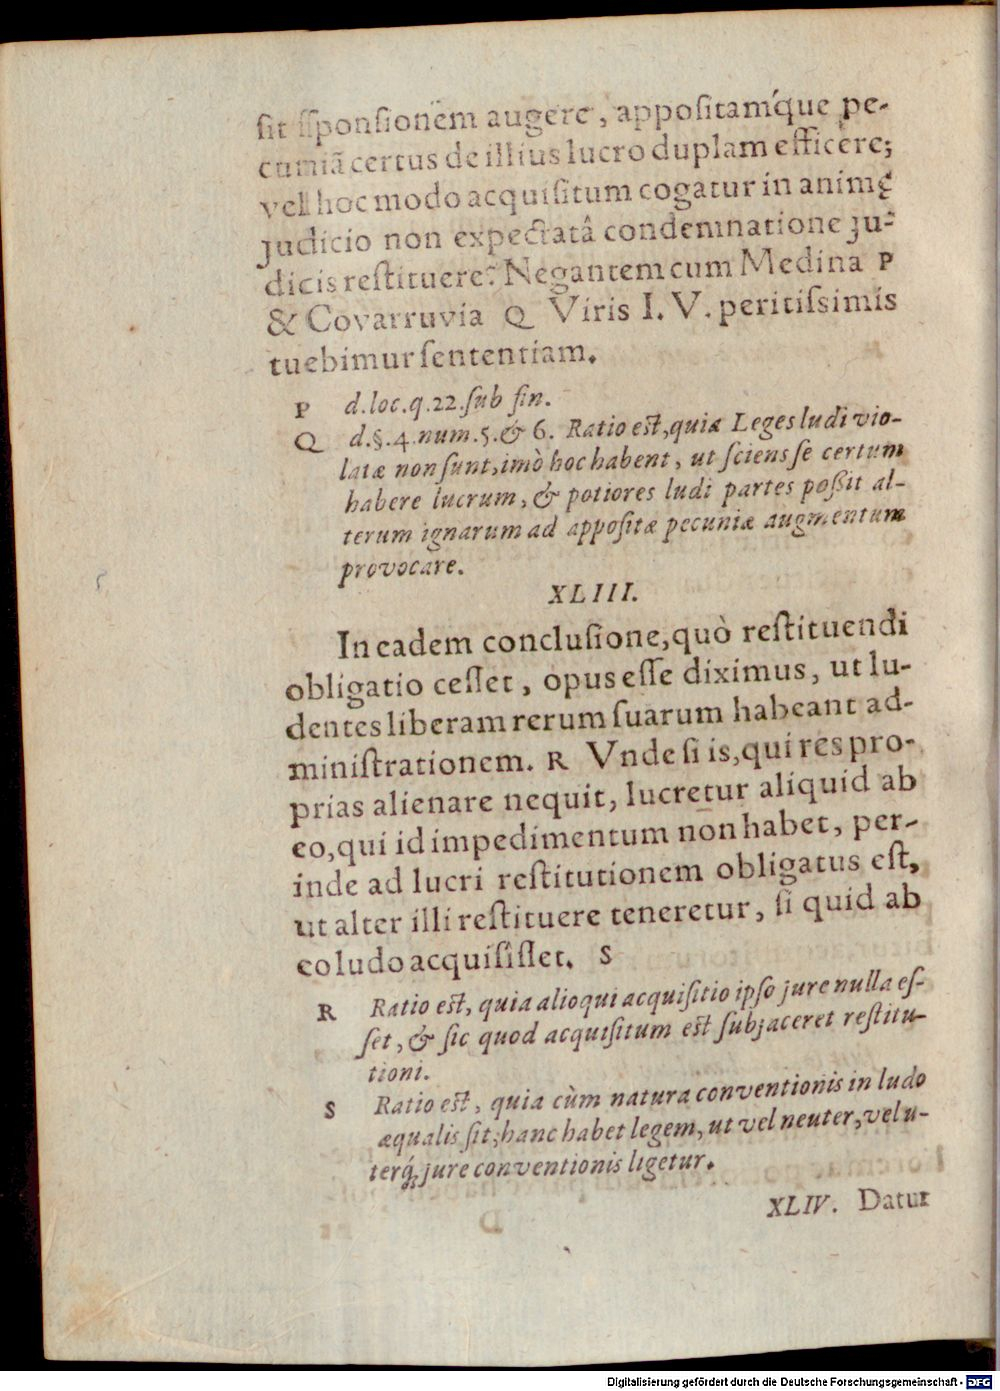 sit ſſponſionem augere, appoſitamq́ue pe-
cuniã certus de illius lucro duplam efficere;
vel hoc modo acquiſitum cogatur in animę
judicio non expectatâ condemnatione ju-
dicis reſtituere? Negantem cum Medina P
& Covarruvia Q Viris I. V. peritiſsimis
tuebimur ſententiam.
P d. loc. q. 22. ſub fin.
Q d. §. 4. num. 5. & 6. Ratio eſt, quia Leges ludi vio-
latæ non ſunt, imò hoc habent, ut ſciens ſe certum
habere lucrum, & potiores ludi partes poßit al-
terum ignarum ad appoſitæ pecuniæ augmentum
provocare.
XLIII.
In eadem concluſione, quò reſtituendi
obligatio ceſſet, opus eſſe diximus, ut lu-
dentes liberam rerum ſuarum habeant ad-
miniſtrationem. R Vnde ſi is, qui res pro-
prias alienare nequit, lucretur aliquid ab
eo, qui id impedimentum non habet, per-
inde ad lucri reſtitutionem obligatus eſt,
ut alter illi reſtituere teneretur, ſi quid ab
eo ludo acquiſiſſet. S
R Ratio eſt, quia alioqui acquiſitio ipſo jure nulla eſ-
ſet, & ſic quod acquiſitum eſt ſubjaceret reſtitu-
tioni.
S Ratio eſt, quia cùm natura conventionis in ludo
æqualis ſit, hanc habet legem, ut vel neuter, vel u-
terq́; jure conventionis ligetur.
XLIV. Datur
Digitalisierung gefördert durch die Deutsche Forschungsgemeinschaft - DFG